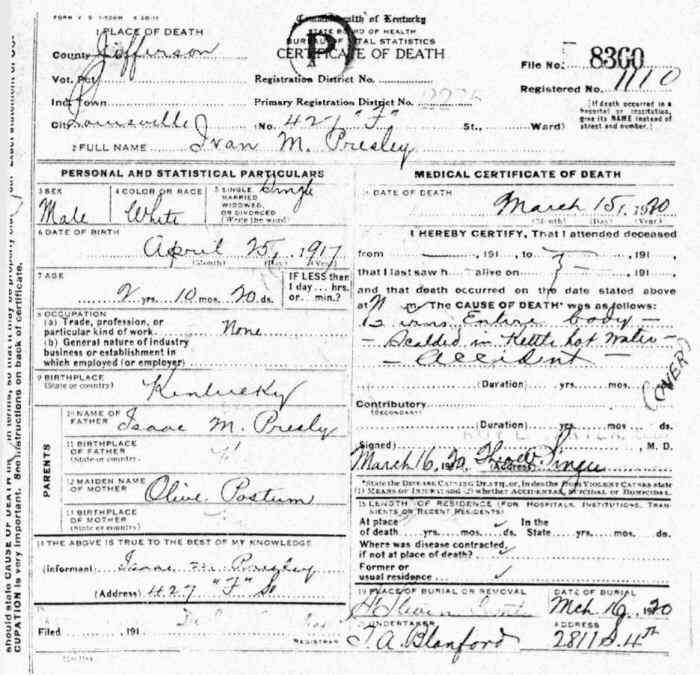 FORM V. S.
Commonwealth of Kentucky
STATE BOARD OF HEALTH
BUREAU OF VITAL STATISTICS
CERTIFICATE OF DEATH
(P)
1 PLACE OF DEATH
County Jefferson
Vot. Pct.
Inc. Town
City Louisville (No. 427 "F" St., Ward)
Registration District No.
Primary Registration District No.
File No. 8360
Registered No. 1110
[If death occurred in a hospital or institution, give its NAME instead of street and number.]
2 FULL NAME Ivan M. Presley
PERSONAL AND STATISTICAL PARTICULARS
3 SEX
Male
4 COLOR OR RACE
White
5 SINGLE, MARRIED WIDOWED, OR DIVORCED (Write the word)
Single
6 DATE OF BIRTH
April 25, 1917
(Month) (Day) (Year)
7 AGE
2 yrs. 10 mos. 20 ds.
IF LESS than 1 day... hrs. or... min.?
8 OCCUPATION
(a) Trade, profession, or particular kind of work None
(b) General nature of industry business or establishment in which employed (or employer)
9 BIRTHPLACE
(State or country) Kentucky
PARENTS
10 NAME OF FATHER Isaac M. Presly
11 BIRTHPLACE OF FATHER (State or country)
12 MAIDEN NAME OF MOTHER Olive Postum
13 BIRTHPLACE OF MOTHER (State or country)
14 THE ABOVE IS TRUE TO THE BEST OF MY KNOWLEDGE
(Informant) Isaac M. Presley
(Address) 427 "F" St
Filed 191
REGISTRAR
MEDICAL CERTIFICATE OF DEATH
DATE OF DEATH
March 15, 1920
(Month) (Day) (Year)
I HEREBY CERTIFY, That I attended deceased
from , 191 , to , 191 ,
that I last saw h alive on , 191 ,
and that death occurred on the date stated above
at m. The CAUSE OF DEATH* was as follows:
Burns Entire body -
- Scalded in Kettle hot water -
- accident -
(Duration) yrs. mos.
(OVER)
Contributory
(SECONDARY)
(Duration) yrs. mos. ds.
(Signed) M. D.
March 16, 1920 (Address)
*State the DISEASE CAUSING DEATH, or, in deaths from VIOLENT CAUSES state (1) MEANS OF INJURY and (2) whether ACCIDENTAL, SUICIDAL or HOMICIDAL.
15 LENGTH OF RESIDENCE (FOR HOSPITALS, INSTITUTIONS, TRANSIENTS OR RECENT RESIDENTS)
At place of death yrs. mos. ds. In the State yrs. mos. ds.
Where was disease contracted, if not at place of death?
Former or usual residence
19 PLACE OF BURIAL OR REMOVAL
DATE OF BURIAL
Mch 16, 1920
UNDERTAKER
T. A. Blanford
ADDRESS
2811 S. 4th
should state CAUSE OF DEATH in terms, so that it may be properly
CUPATION is very important. See instructions on back of certificate.